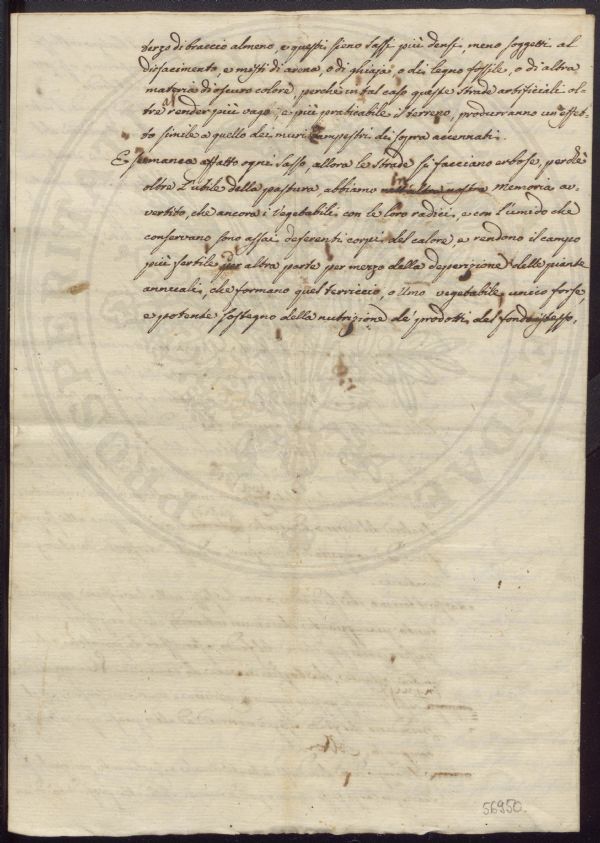 terzo di braccio almeno, e questi sieno sassi più densi, meno soggetti al
disfacimento, e misti di arena, o di ghiaja, o di legno fossile, o di altra
materia di oscuro colore, perchè in tal caso queste strade artificiali ol-
tre render più vago, e più praticabile il terreno, produrranno un effet-
to simile a quello dei muri campestri di sopra accennati.
E se manca affatto ogni sasso, allora le strade si facciano erbose, perchè
oltre l'utile della pastura, abbiamo in altra nostra Memoria av-
vertito, che ancora i vegetabili con le loro radici, e con l'umido che
conservano sono assai deferenti corpi del calore, e rendono il campo
più fertile per altra parte per mezzo della deperizione delle piante
annuali, che formano quel terriccio, o Umo vegetabile unico forse,
e potente sostegno della nutrizione de' prodotti del fondo istesso.
PROSPERITATI
56950.